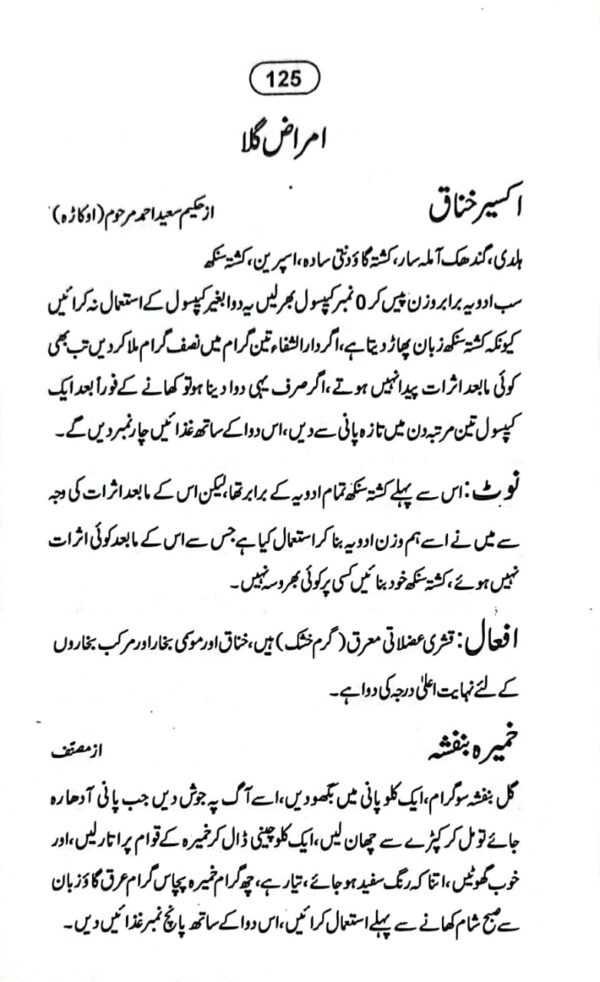 125
امراض گلا
اکسیر خناق
از حکیم سعید احمد مرحوم (اوکاڑہ)
ہلدی، گندھک آملہ سار، کشتہ گاؤدنتی سادہ، اسپرین، کشتہ سنکھ
سب ادویہ برابر وزن پیس کر 0 نمبر کیپسول بھر لیں یہ دوا بغیر کیپسول کے استعمال نہ کرائیں
کیونکہ کشتہ سنکھ زبان پھاڑ دیتا ہے، اگر دارالشفاء تین گرام میں نصف گرام ملا کر دیں تب بھی
کوئی مابعد اثرات پیدا نہیں ہوتے، اگر صرف یہی دوا دینا ہو تو کھانے کے فوراً بعد ایک
کیپسول تین مرتبہ دن میں تازہ پانی سے دیں، اس دوا کے ساتھ غذائیں چار نمبر دیں گے۔
نوٹ: اس سے پہلے کشتہ سنکھ تمام ادویہ کے برابر تھا، لیکن اس کے مابعد اثرات کی وجہ
سے میں نے اسے ہم وزن ادویہ بنا کر استعمال کیا ہے جس سے اس کے مابعد کوئی اثرات
نہیں ہوئے، کشتہ سنکھ خود بنائیں کسی پر کوئی بھروسہ نہیں۔
افعال: قشری عضلاتی معرق (گرم خشک) ہیں، خناق اور موسمی بخار اور مرکب بخاروں
کے لئے نہایت اعلیٰ درجہ کی دوا ہے۔
خمیرہ بنفشہ
از مصنف
گل بنفشہ سو گرام، ایک کلو پانی میں بھگو دیں، اسے آگ پہ جوش دیں جب پانی آدھا رہ
جائے تو مل کر کپڑے سے چھان لیں، ایک کلو چینی ڈال کر خمیرہ کے قوام پر اتار لیں، اور
خوب گھوٹیں، اتنا کہ رنگ سفید ہو جائے، تیار ہے، چھ گرام خمیرہ پچاس گرام عرق گاؤزبان
سے صبح شام کھانے سے پہلے استعمال کرائیں، اس دوا کے ساتھ پانچ نمبر غذائیں دیں۔